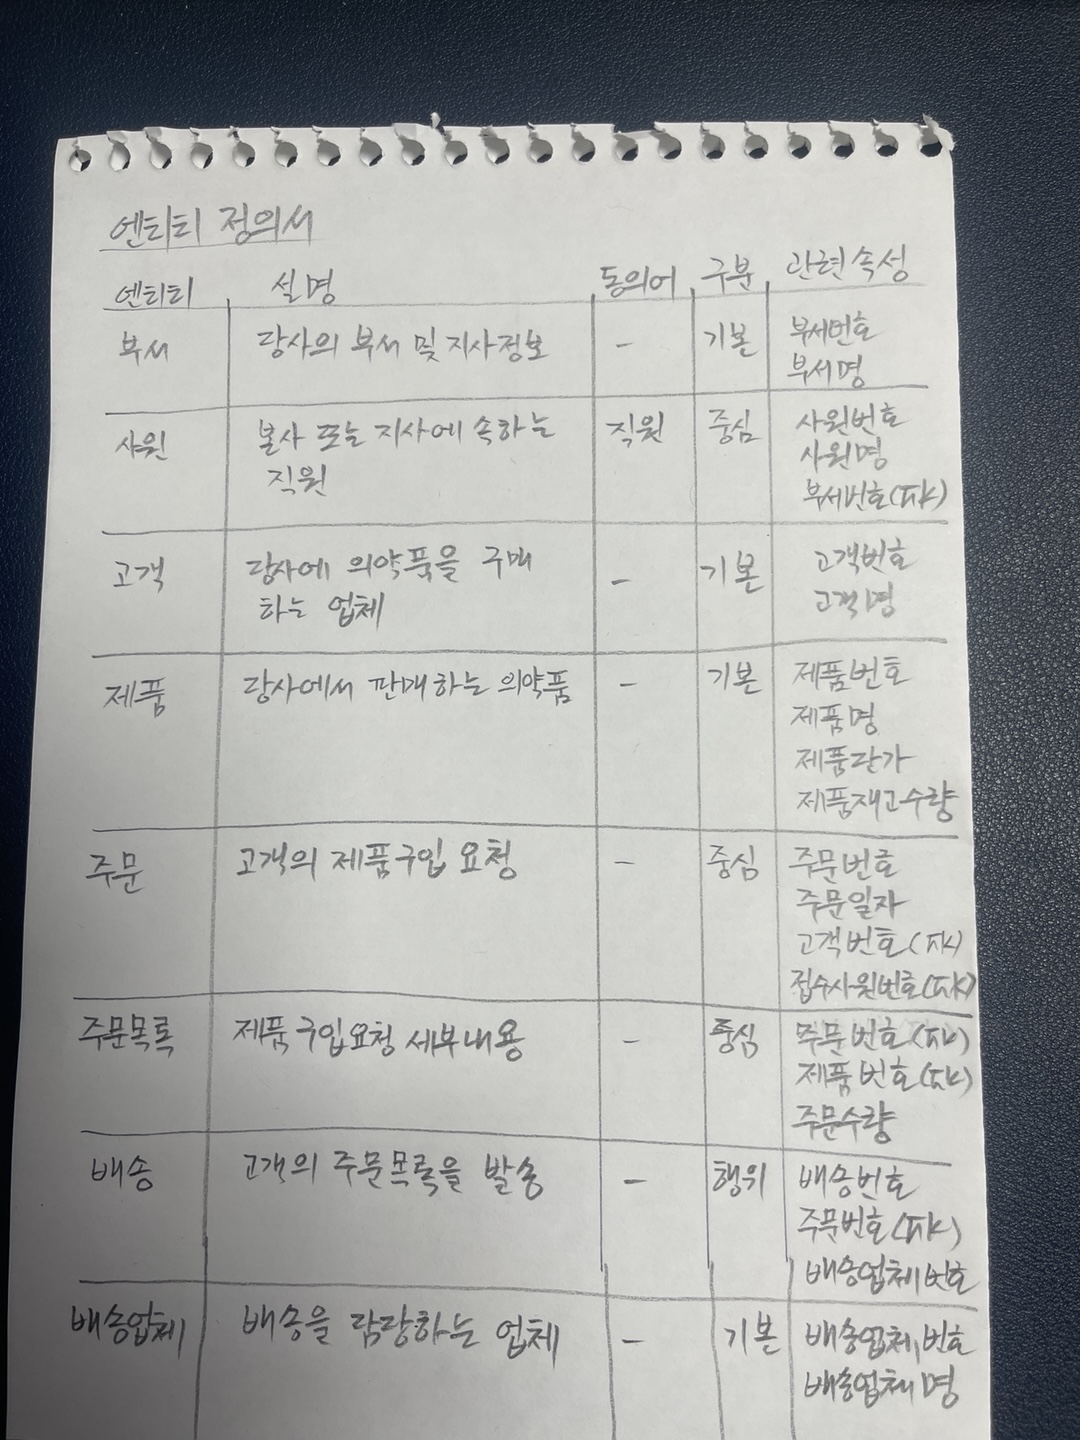 엔티티 정의서
엔티티 설명 동의어 구분 관련속성
부서 당사의 부서 및 지사정보 - 기본 부서번호
부서명
사원 본사 또는 지사에 속하는 직원 중심 사원번호
직원 사원명
부서번호(FK)
고객 당사에 의약품을 구매 - 기본 고객번호
하는 업체 고객명
제품 당사에서 판매하는 의약품 - 기본 제품번호
제품명
제품단가
제품재고수량
주문 고객의 제품구입 요청 - 중심 주문번호
주문일자
고객번호(FK)
접수사원번호(FK)
주문목록 제품구입요청 세부내용 - 중심 주문번호(FK)
제품번호(FK)
주문수량
배송 고객의 주문목록을 발송 - 행위 배송번호
주문번호(FK)
배송업체번호
배송업체 배송을 담당하는 업체 - 기본 배송업체번호
배송업체명